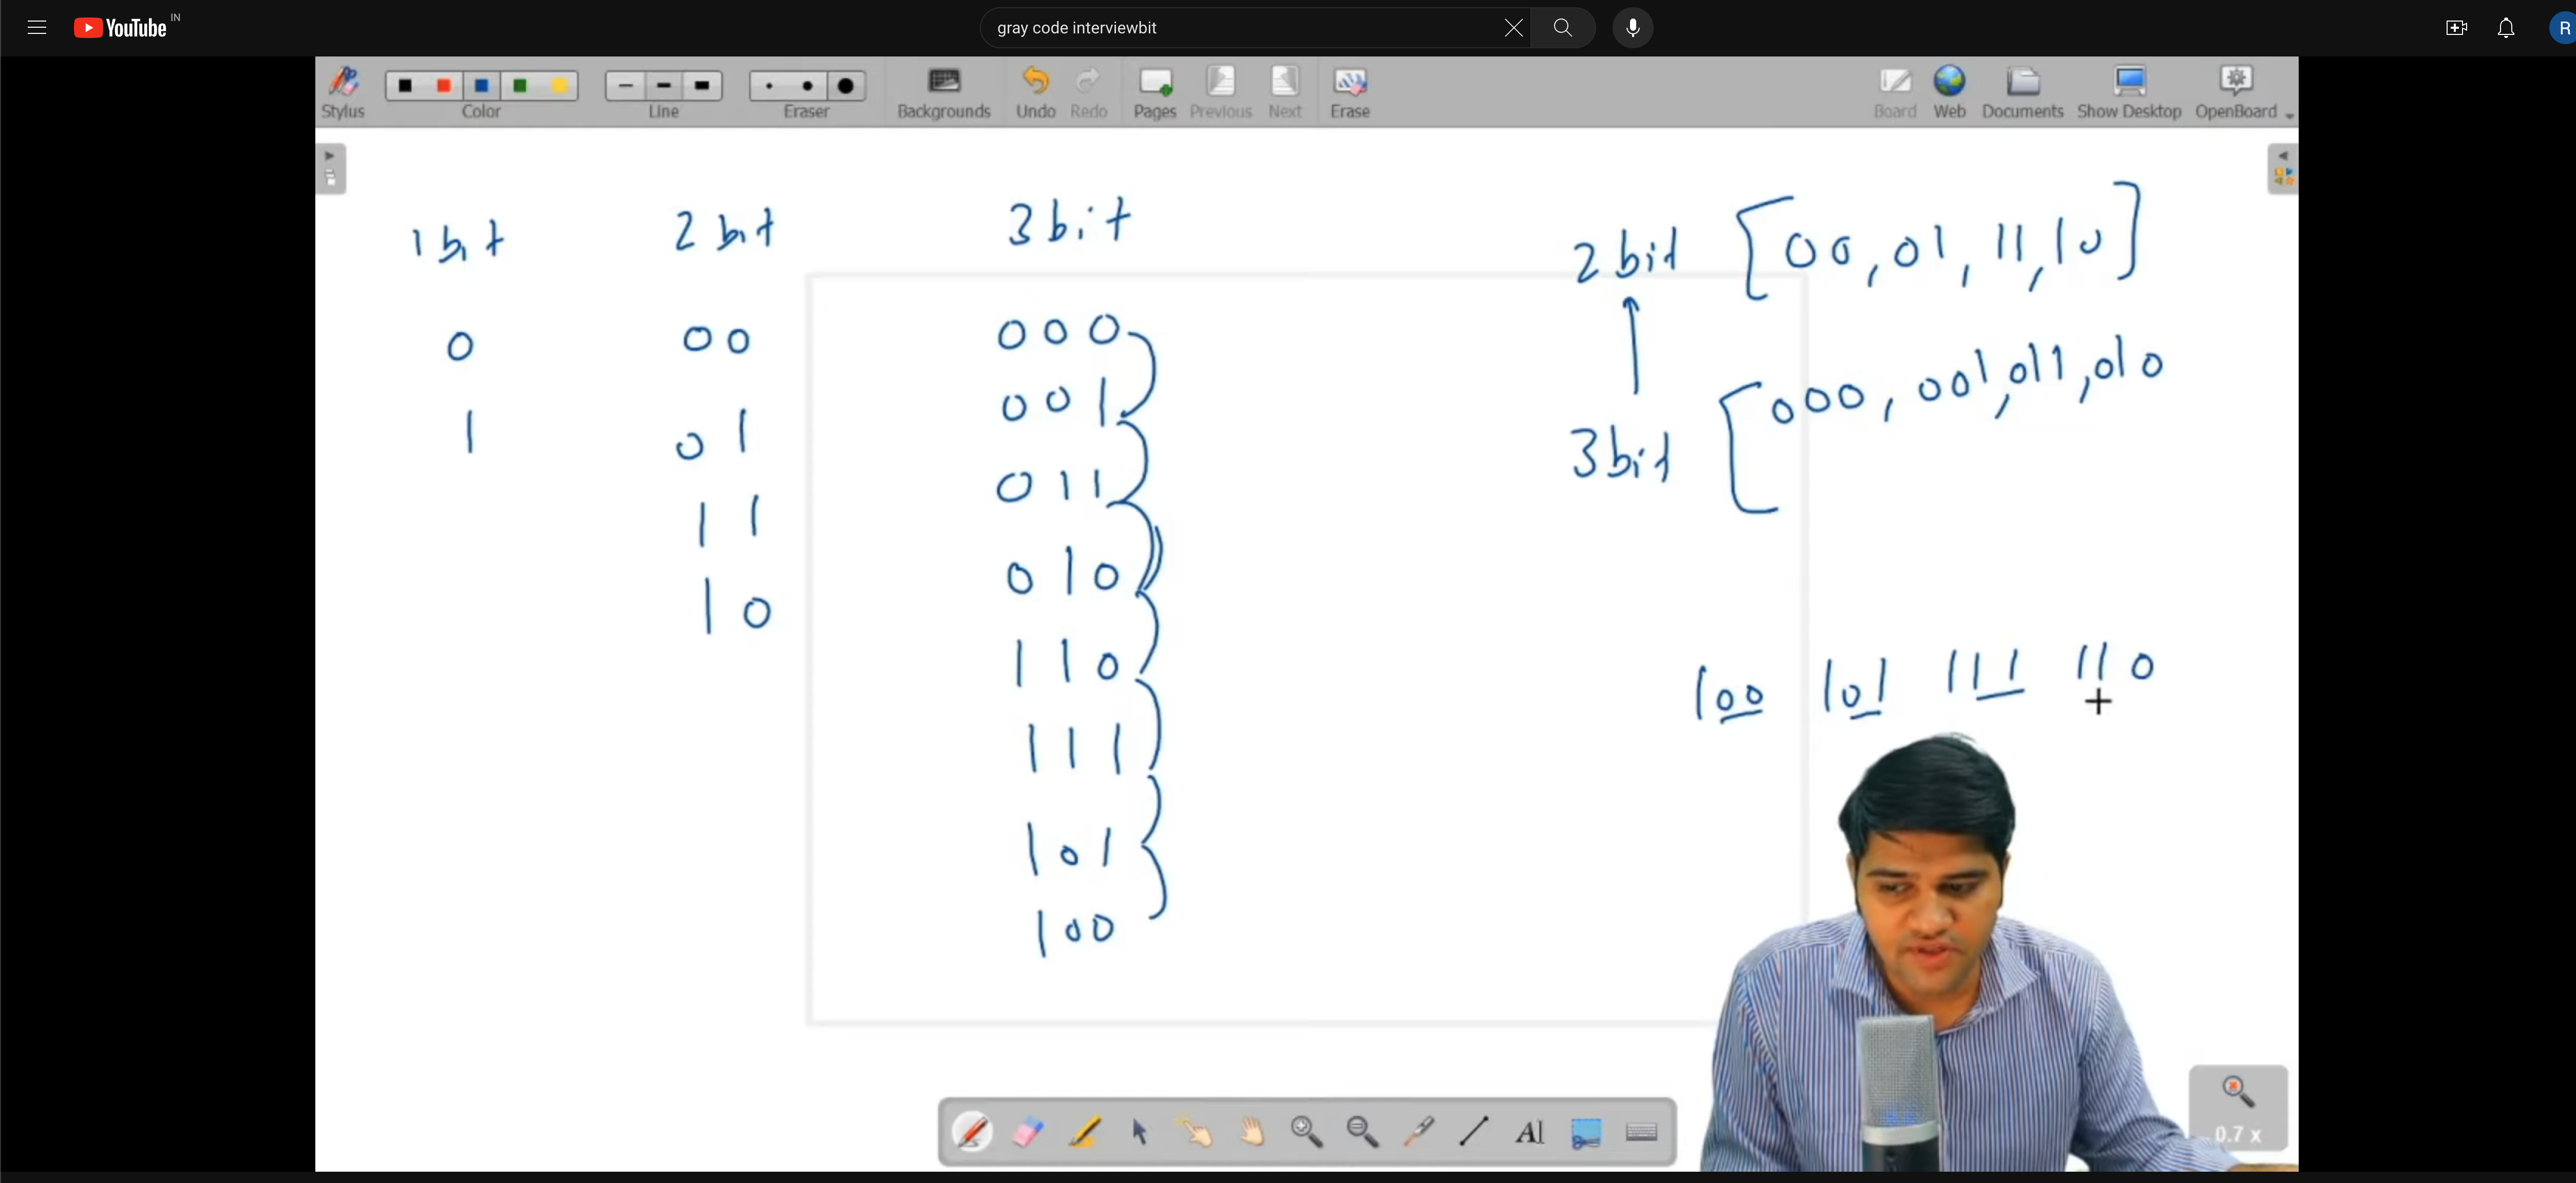 YouTube IN
gray code interviewbit
R
Stylus
Color
Line
Eraser
Backgrounds
Undo
Redo
Pages
Previous
Next
Erase
Board
Web
Documents
Show Desktop
OpenBoard
1 bit
0
1
2 bit
00
01
11
10
3 bit
000
001
011
010
110
111
101
100
2 bit [00, 01, 11, 10]
3 bit [000, 001, 011, 010
100 101 111 110
0.7 x